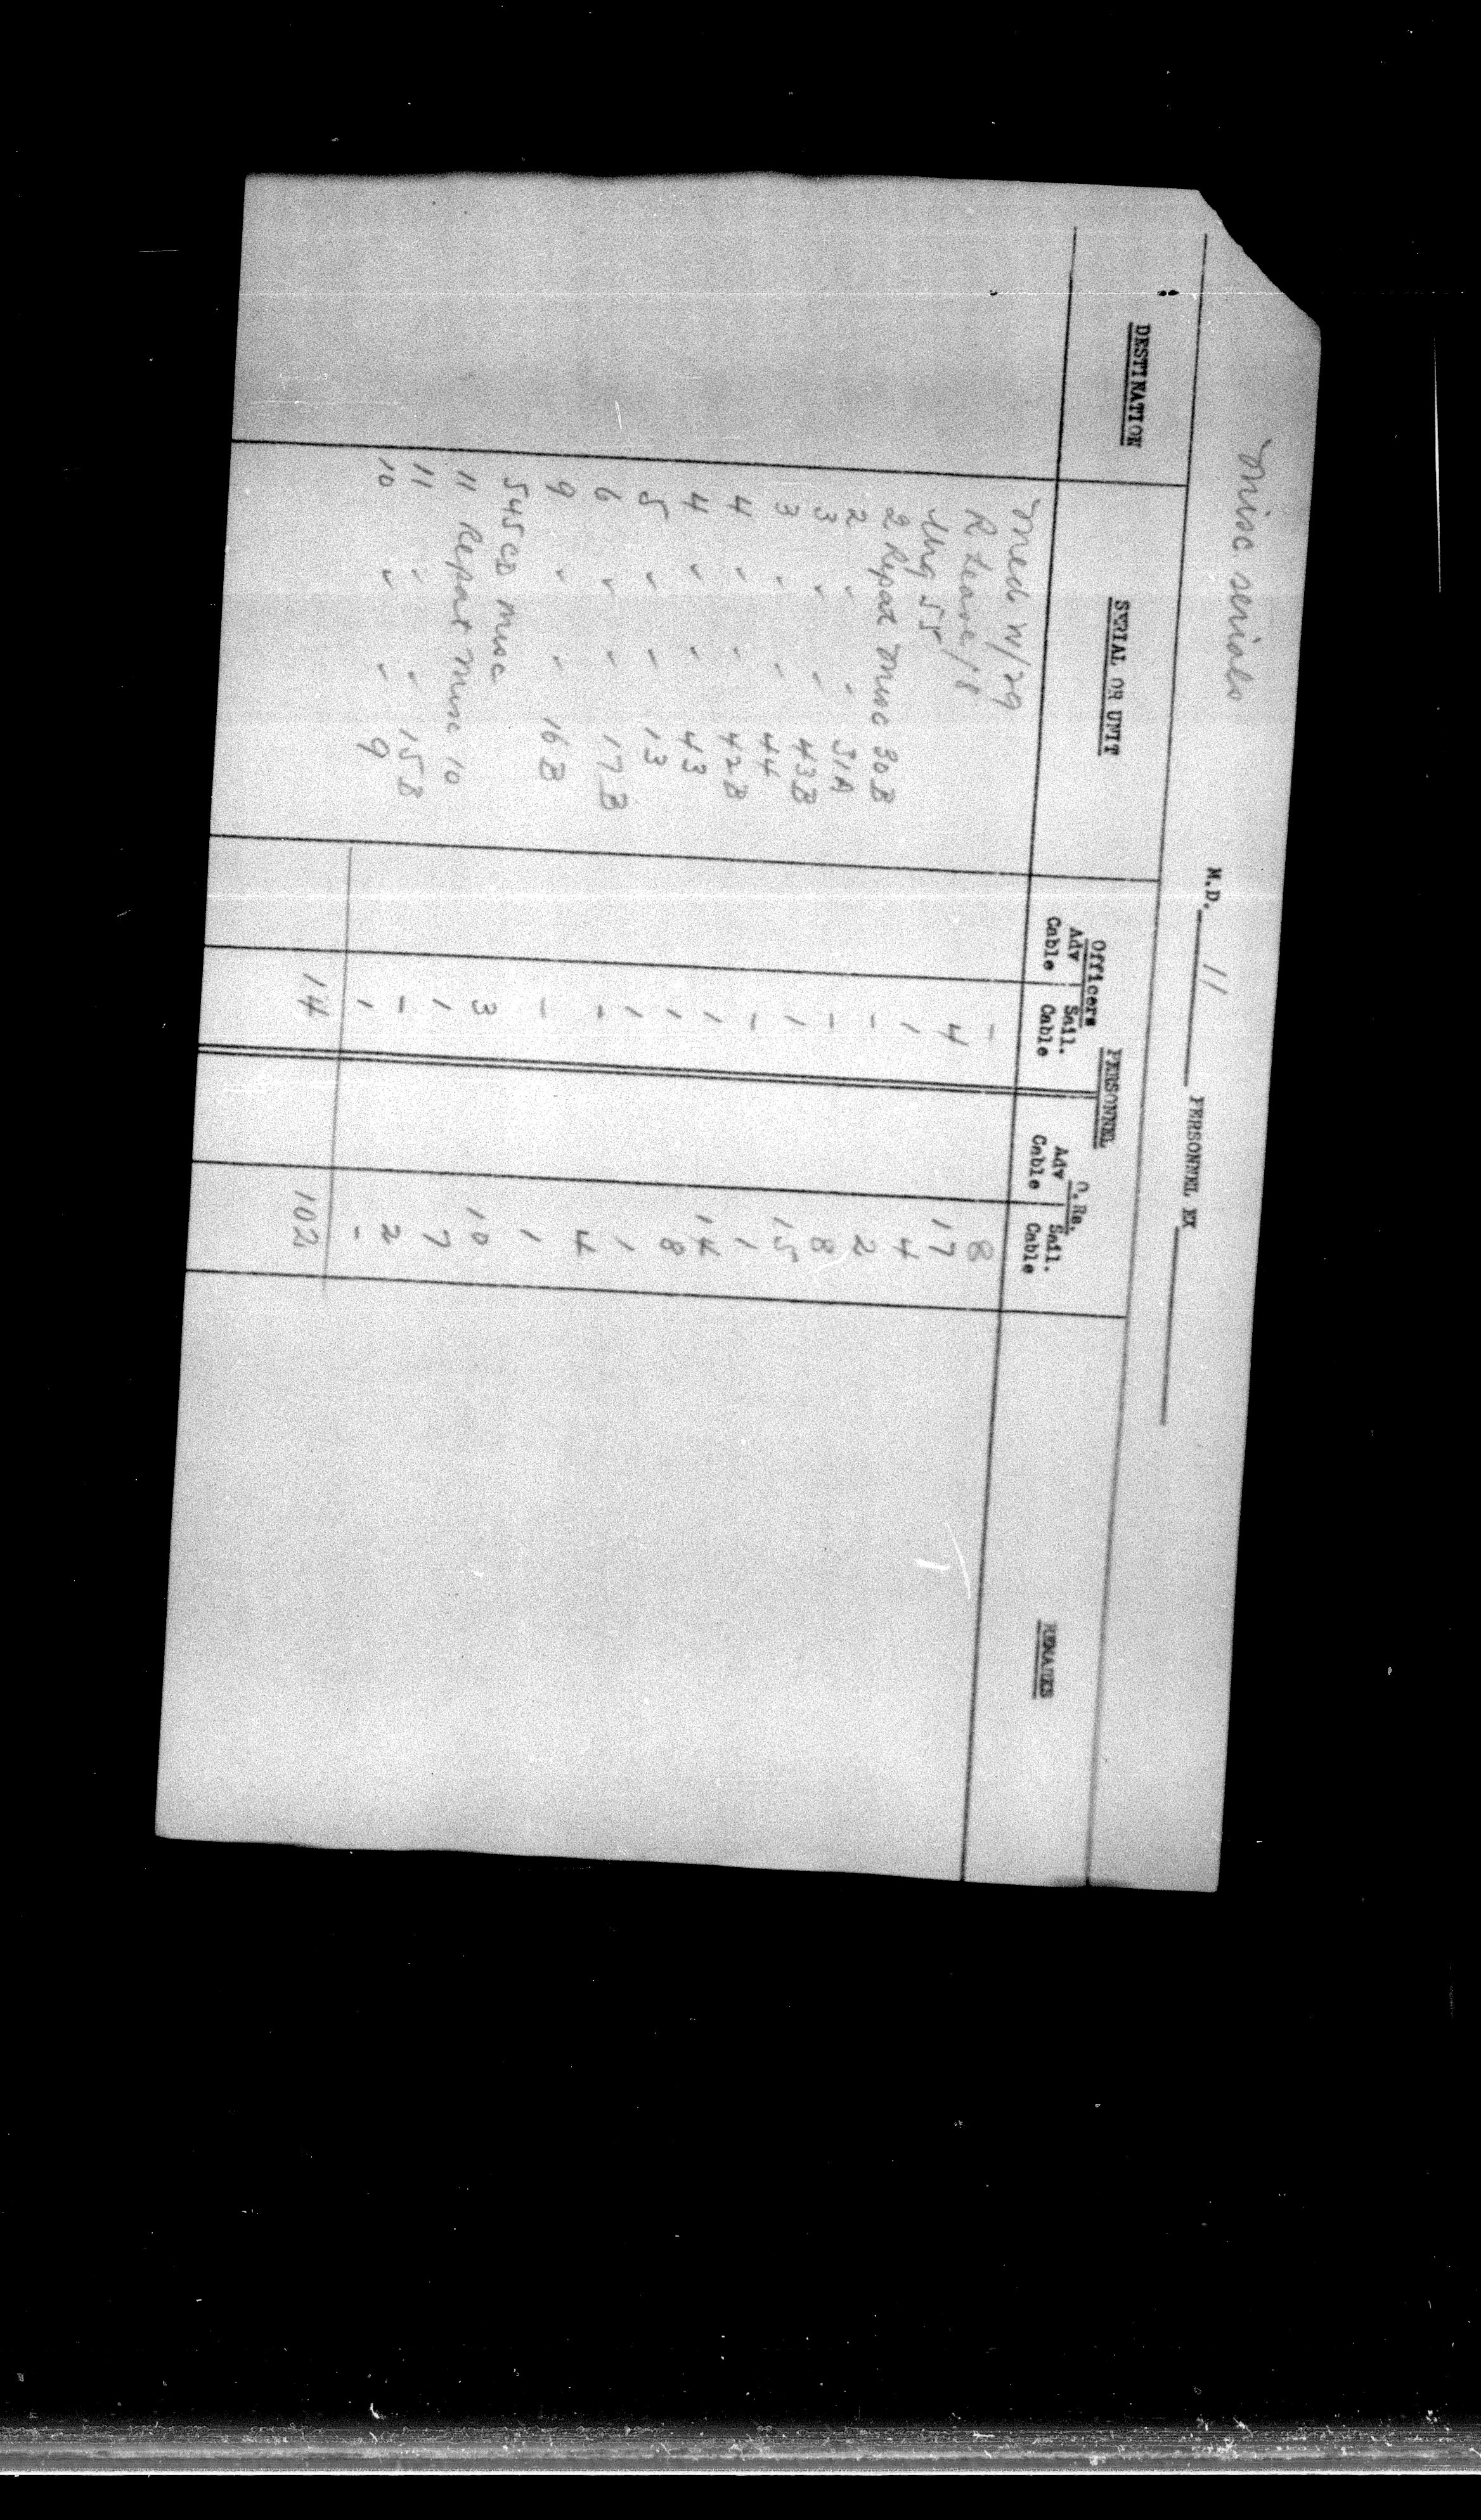 Misc. serials
M.D. 11 PERSONNEL EX
DESTINATION SERIAL OR UNIT PERSONNEL REMARKS
Officers O.Rs.
Adv Cable Sail. Cable Adv Cable Sail. Cable
Med W/29 - 8
R Leave/18 4 17
55 1 4
2 Repat Misc 30B - 2
2 " " 31A - 8
3 " " 43B 1 15
3 " " 44 - 1
4 " " 42B 1 14
4 " " 43 1 8
5 " " 13 1 1
6 " " 17B - 4
9 " " 16B - 1
545CD Misc 3 10
11 Repat Misc 10 1 7
11 " " 15B - 2
10 " " 9 1 -
14 102